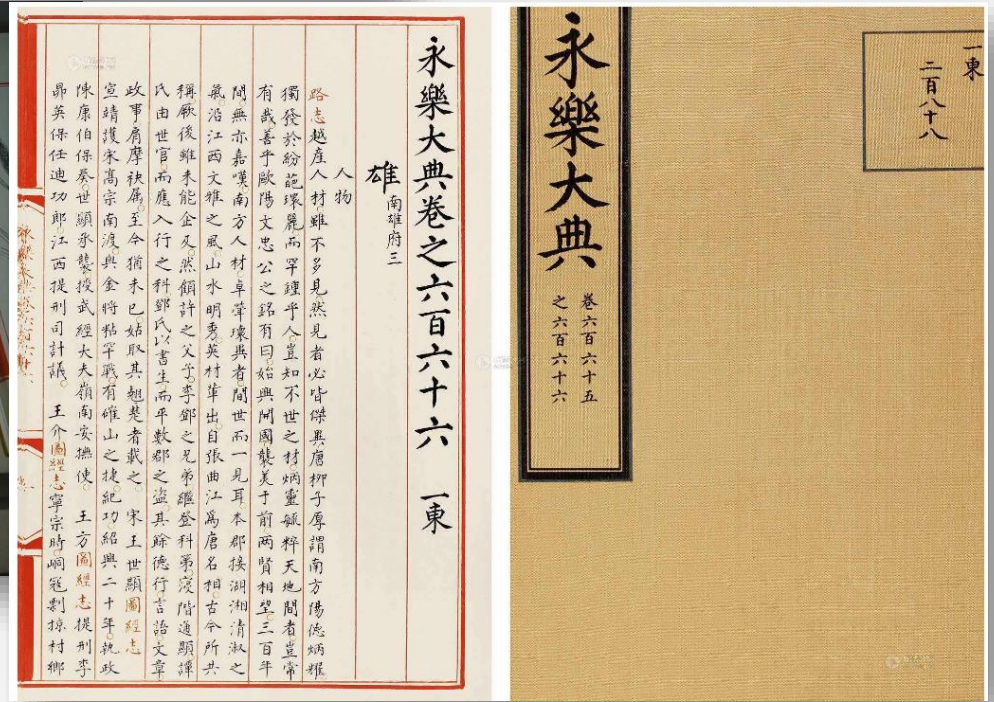 永樂大典卷之六百六十六 一東
雄 南雄府三
人物
路志越產人材雖不多見然見者必皆傑異唐柳子厚謂南方陽德炳耀
獨發於紛葩瓌麗而罕鍾乎人豈知不世之材炳靈毓粹天地間者豈常
有哉善乎歐陽文忠公之銘有曰始興開國襲美于前兩賢相望三百年
間無亦嘉嘆南方人材卓犖瓌異者間世而一見耳本郡接湖湘清淑之
氣沿江西文雅之風山水明秀英材輩出自張曲江為唐名相古今所共
稱厥後雖未能企及然頡許之父子李鄧之兄弟繼登科第寖階通顯譚
氏由世官而應入行之科鄧氏以書生而平數郡之盜其餘德行言語文章
政事肩摩袂屬至今猶未已姑取其翹楚者載之 宋王世顯圖經志
宣靖護宋高宗南渡與金將粘罕戰有確山之捷紀功紹興二十年執政
陳康伯保奏世顯承襲授武經大夫嶺南安撫使 王方圖經志提刑李
昴英保任迪功郎江西提刑司計議 王介圖經志寧宗時峒寇剽掠村鄉
永樂大典
卷六百六十五
之六百六十六
一東
二百八十八